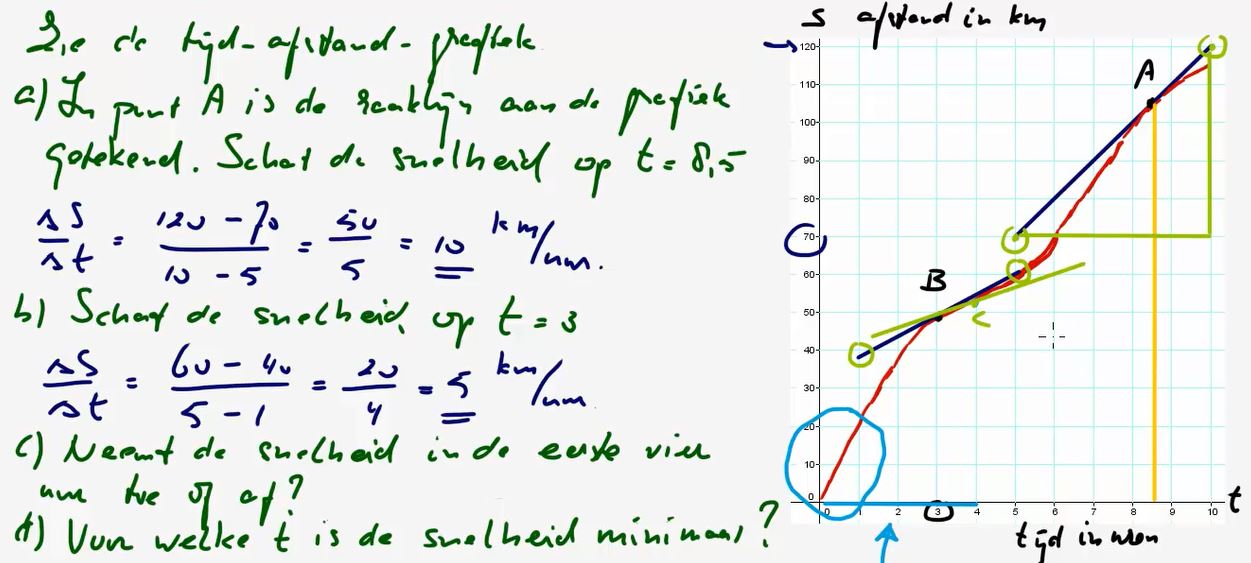 Zie de tijd-afstand-grafiek
a) In punt A is de raaklijn aan de grafiek
getekend. Schat de snelheid op t = 8,5
ΔS/Δt = (120 - 70)/(10 - 5) = 50/5 = 10 km/uur.
b) Schat de snelheid op t = 3
ΔS/Δt = (60 - 40)/(5 - 1) = 20/4 = 5 km/uur
c) Neemt de snelheid in de eerste vier
uur toe of af?
d) Voor welke t is de snelheid minimaal?
S afstand in km
120
110
100
90
80
70
60
50
40
30
20
10
0
A
B
C
0 1 2 3 4 5 6 7 8 9 10
t
tijd in uren